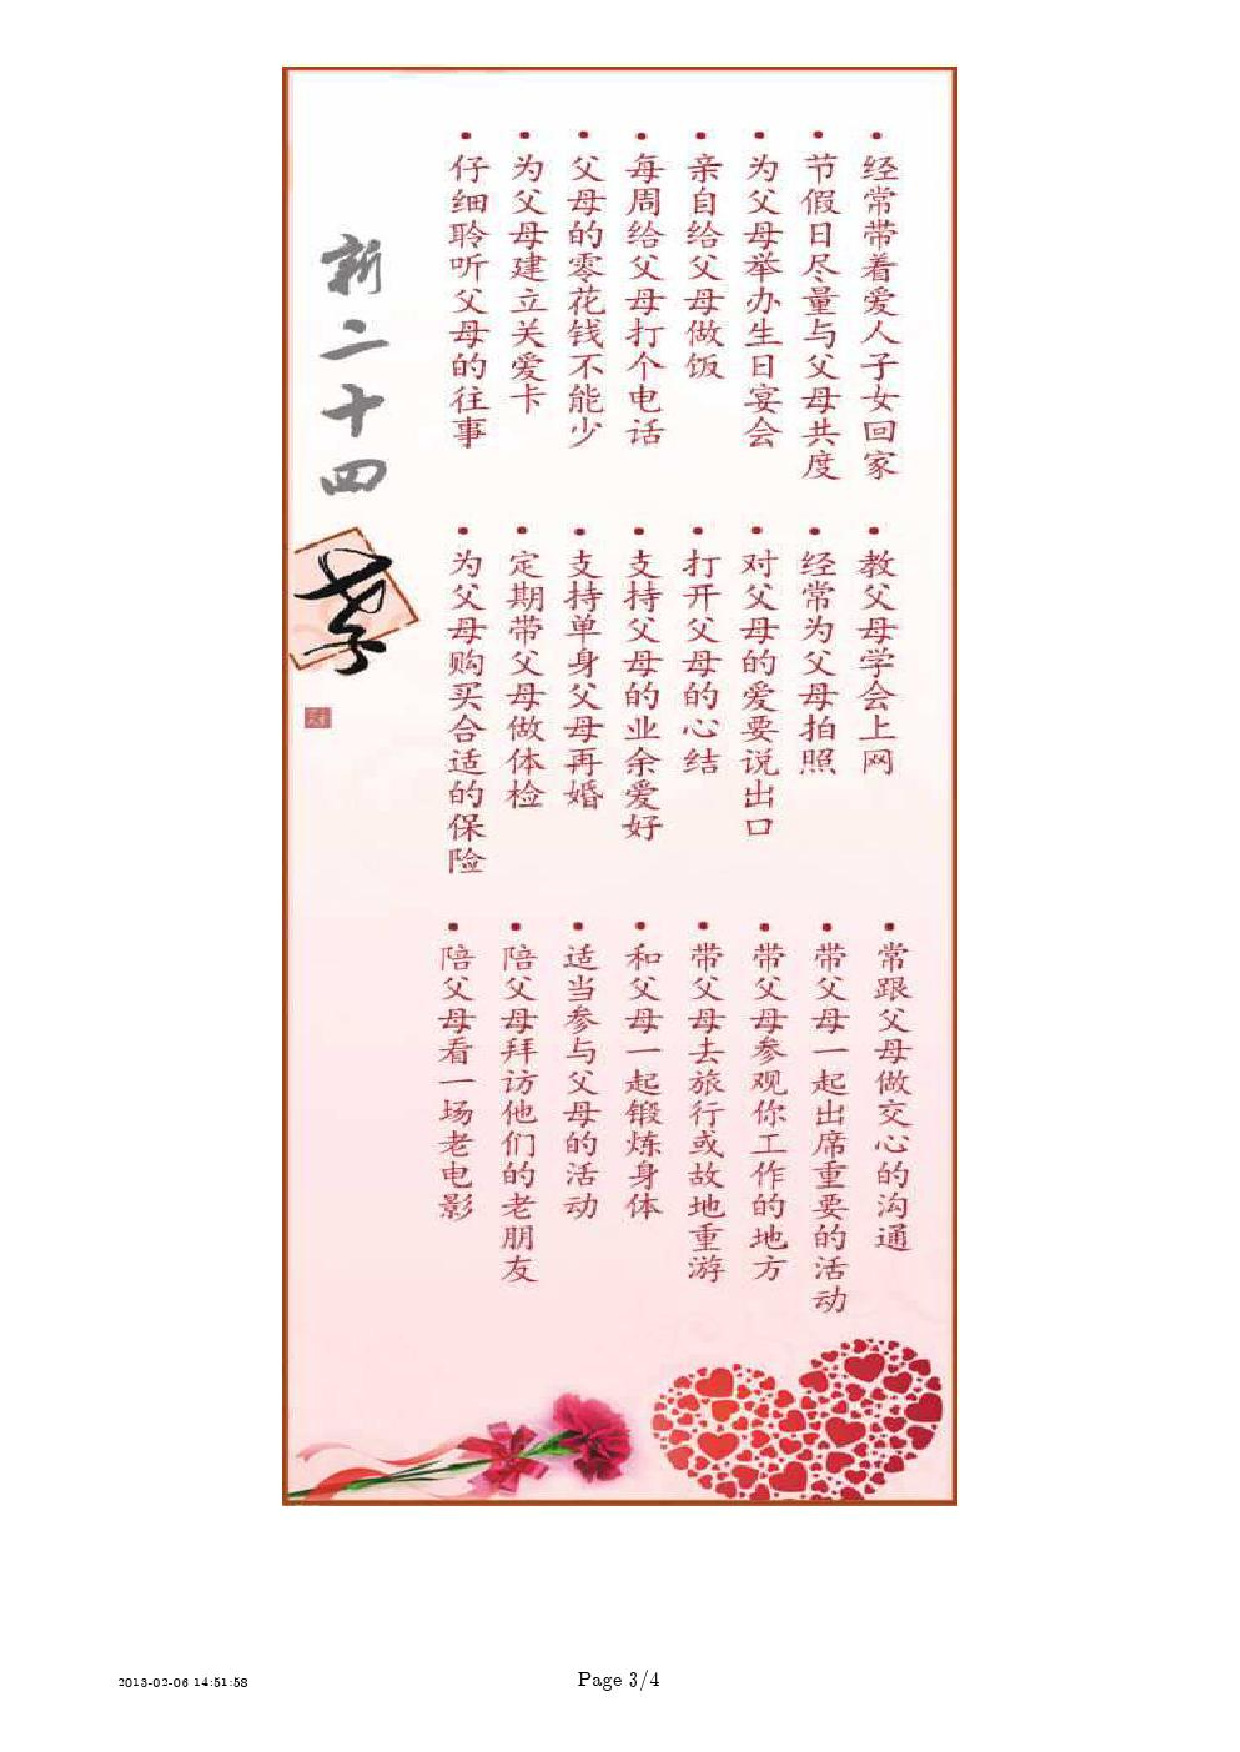 新二十四孝
经常带着爱人子女回家
节假日尽量与父母共度
为父母举办生日宴会
亲自给父母做饭
每周给父母打个电话
父母的零花钱不能少
为父母建立关爱卡
仔细聆听父母的往事
教父母学会上网
经常为父母拍照
对父母的爱要说出口
打开父母的心结
支持父母的业余爱好
支持单身父母再婚
定期带父母做体检
为父母购买合适的保险
常跟父母做交心的沟通
带父母一起出席重要的活动
带父母参观你工作的地方
带父母去旅行或故地重游
和父母一起锻炼身体
适当参与父母的活动
陪父母拜访他们的老朋友
陪父母看一场老电影
2013-02-06 14:51:58
Page 3/4